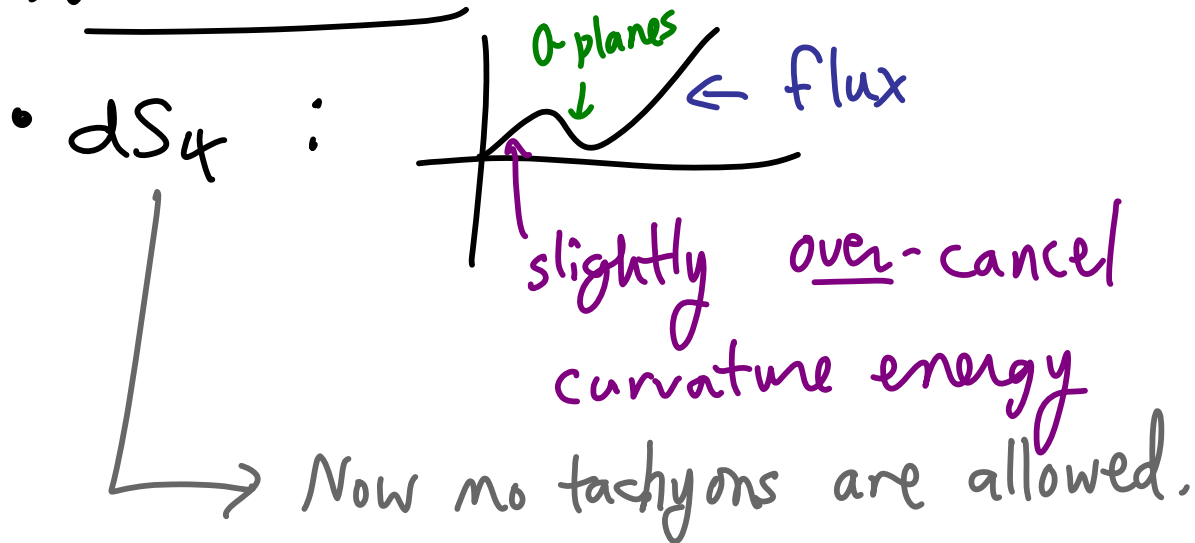 O-planes
← flux
• dS4 :
slightly over-cancel
curvature energy
Now no tachyons are allowed.